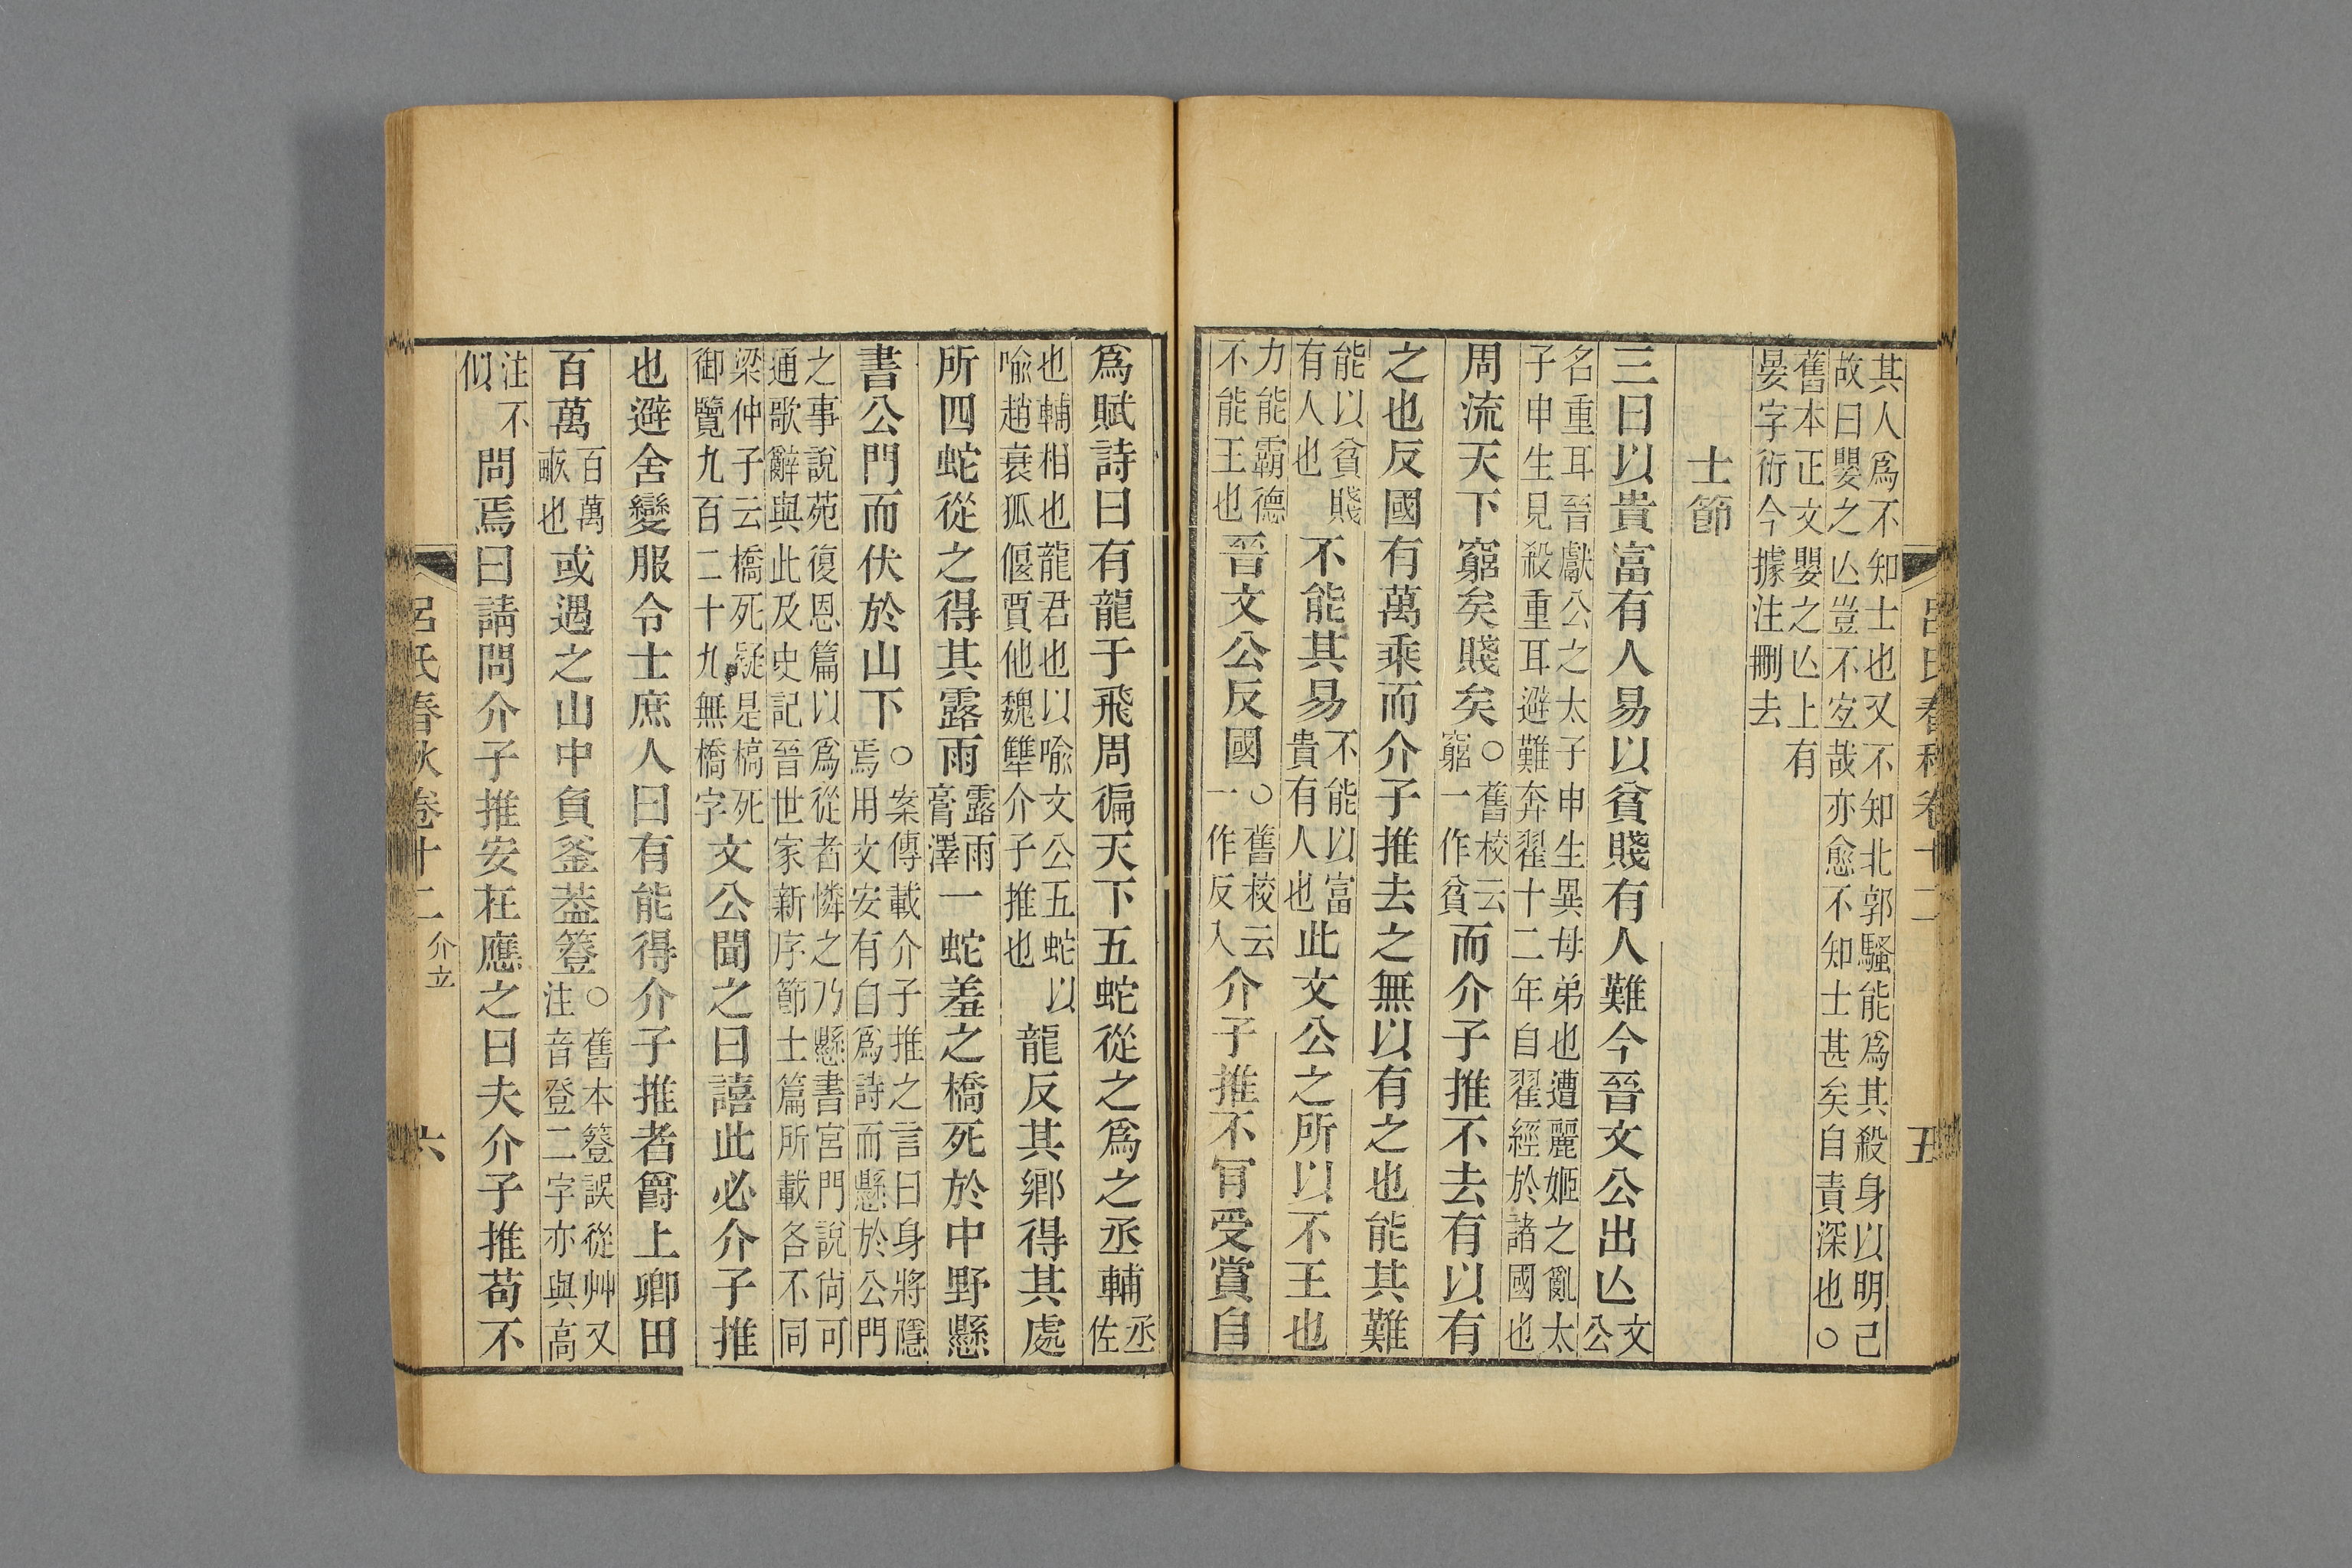 其人爲不知士也又不知北郭騷能爲其殺身以明己
故曰嬰之亾豈不宐哉亦愈不知士甚矣自責深也○
舊本正文嬰之亾上有
晏字衍今據注刪去
士節
三曰以貴富有人易以貧賤有人難今晉文公出亾文
公
名重耳晉獻公之太子申生異母弟也遭麗姬之亂太
子申生見殺重耳避難奔翟十二年自翟經於諸國也
周流天下窮矣賤矣○舊校云
窮一作貧而介子推不去有以有
之也反國有萬乘而介子推去之無以有之也能其難
能以貧賤
有人也不能其易不能以富
貴有人也此文公之所以不王也
力能霸德
不能王也晉文公反國○舊校云
一作反入介子推不肎受賞自
呂氏春秋卷十二
五
爲賦詩曰有龍于飛周徧天下五蛇從之爲之丞輔丞
佐
也輔相也龍君也以喻文公五蛇以
喻趙衰狐偃賈他魏犨介子推也龍反其鄉得其處
所四蛇從之得其露雨露雨
膏澤一蛇羞之橋死於中野懸
書公門而伏於山下○案傳載介子推之言曰身將隱
焉用文安有自爲詩而懸於公門
之事說苑復恩篇以爲從者憐之乃懸書宮門說尙可
通歌辭與此及史記晉世家新序節士篇所載各不同
梁仲子云橋死疑是槁死
御覽九百二十九無橋字文公聞之曰譆此必介子推
也避舍變服令士庶人曰有能得介子推者爵上卿田
百萬百萬
畞也或遇之山中負釜蓋簦○舊本簦誤從艸又
注音登二字亦與高
注不
似問焉曰請問介子推安在應之曰夫介子推苟不
呂氏春秋卷十二
介立
六